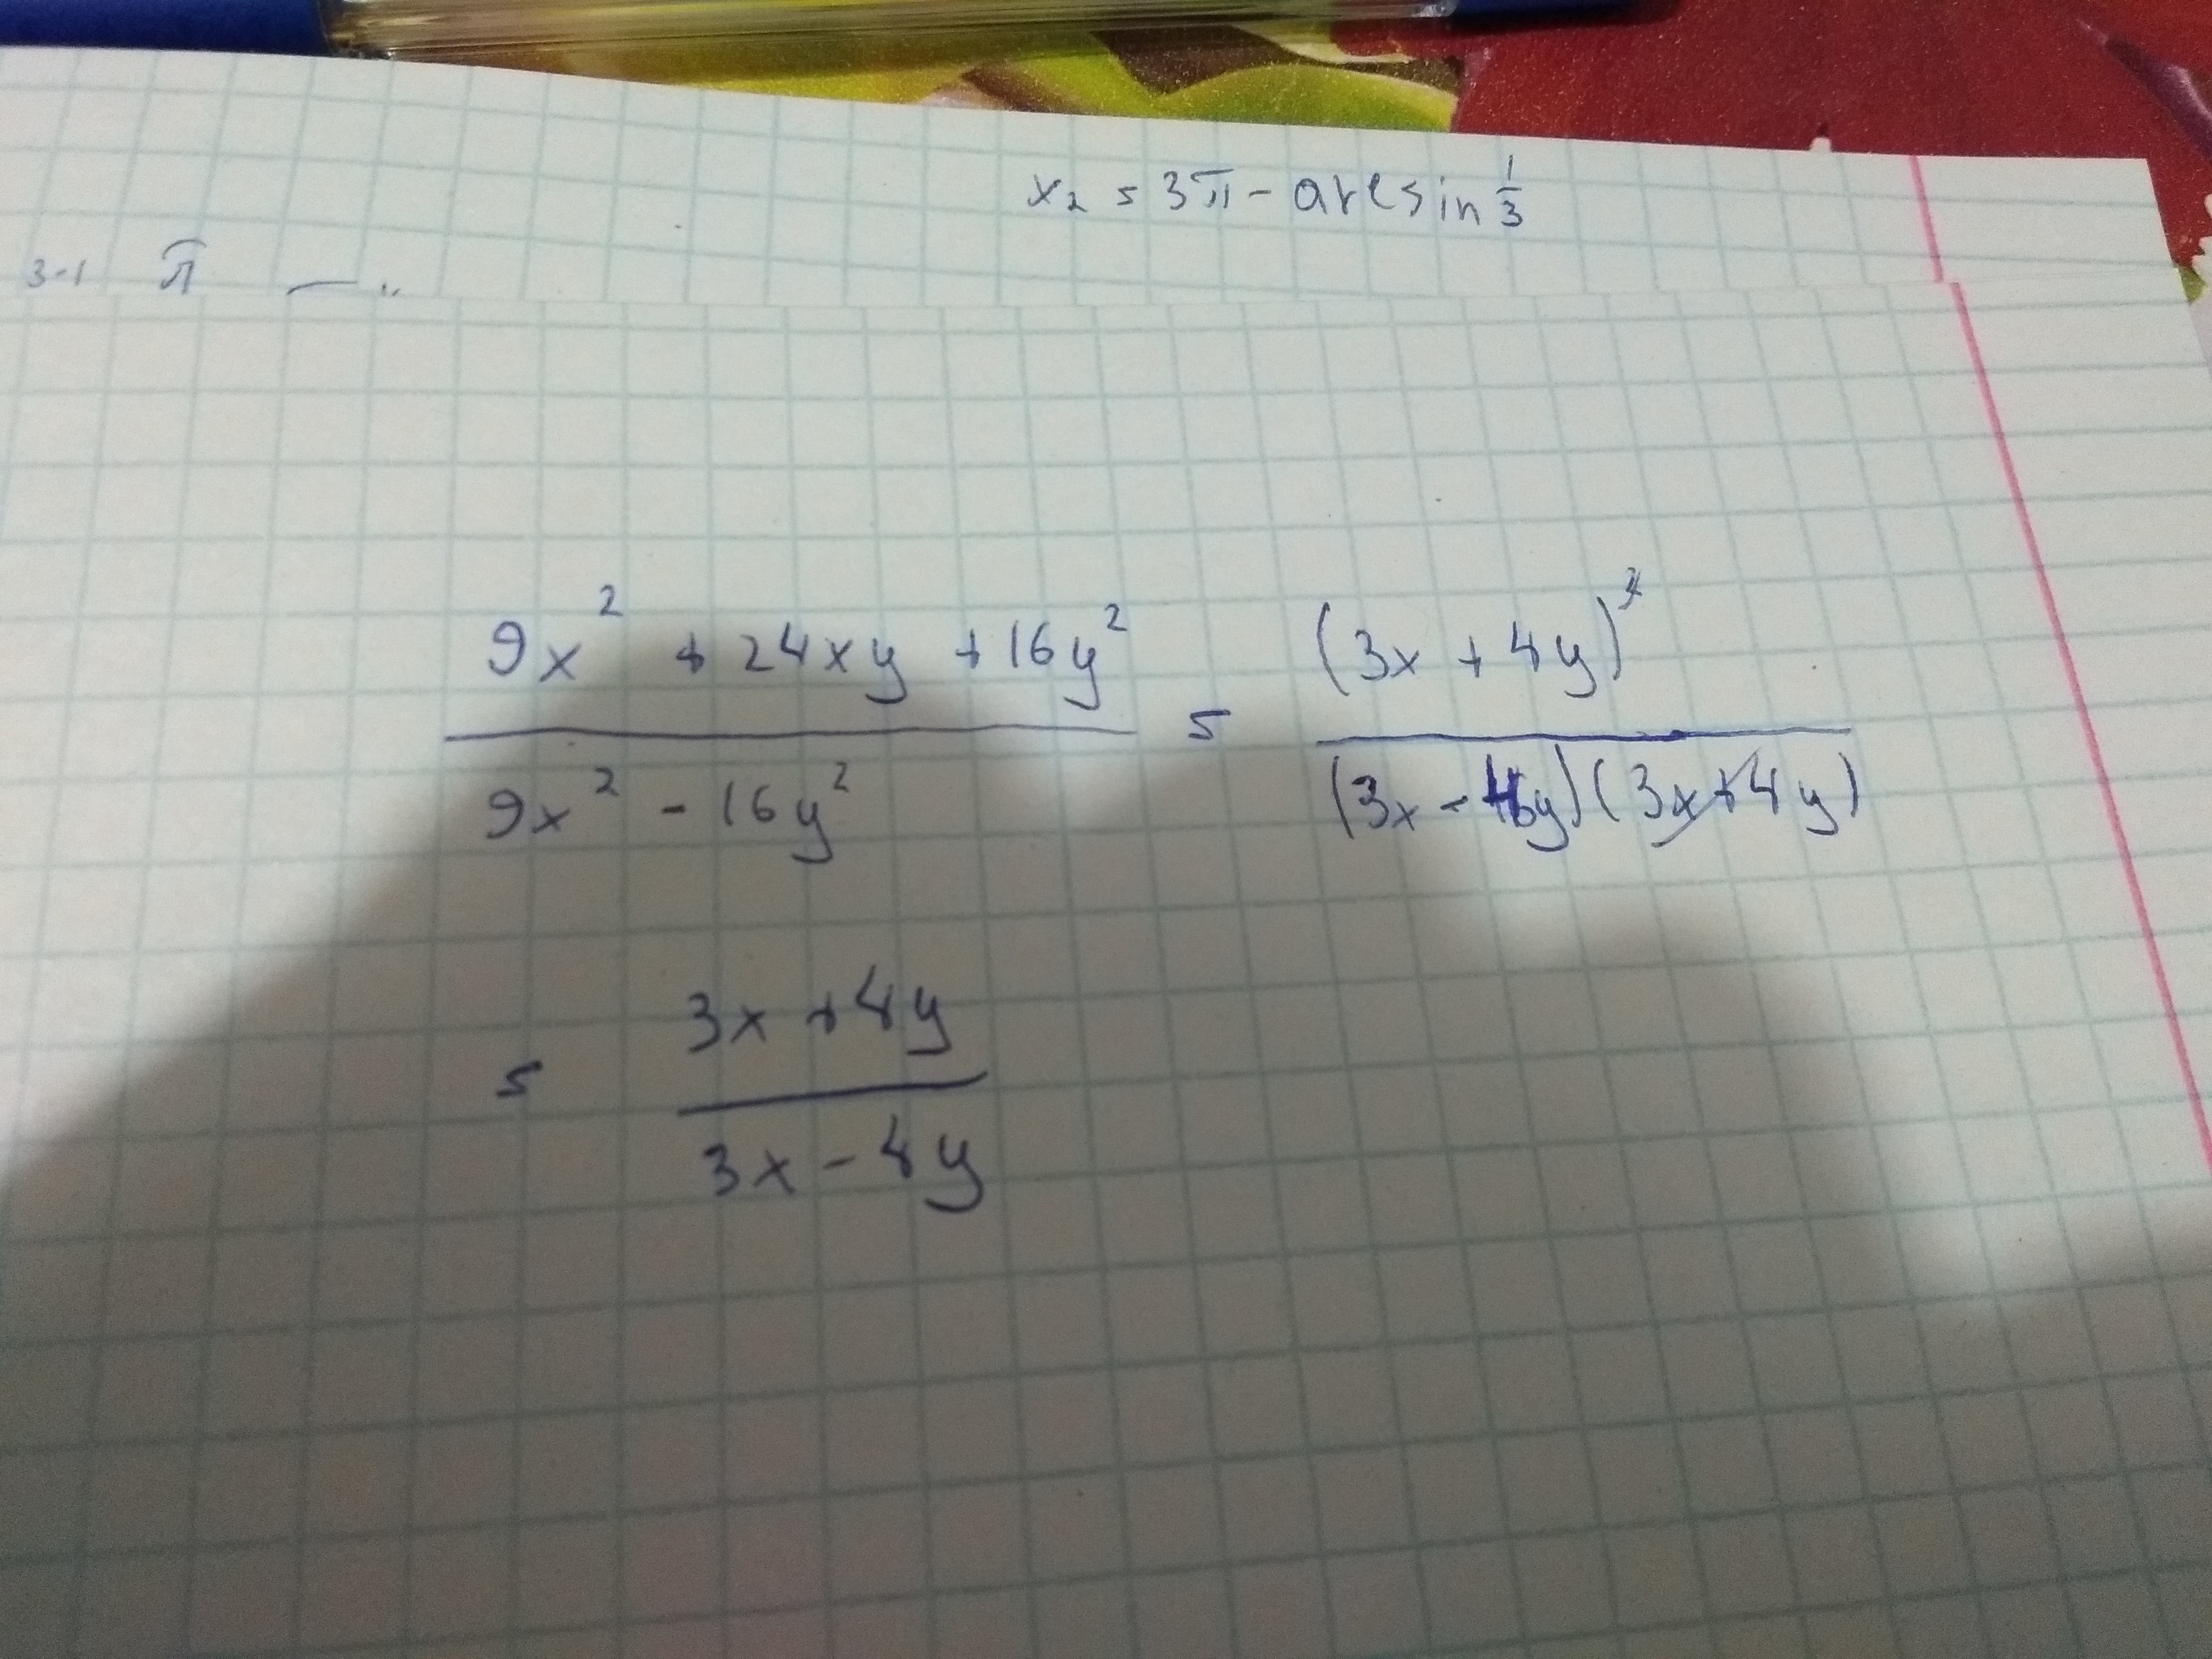 x₂ = 3π - arcsin 1/3
3-1 π
(9x² + 24xy + 16y²)/(9x² - 16y²) = (3x + 4y)²/((3x - 4y)(3x + 4y))
= (3x + 4y)/(3x - 4y)